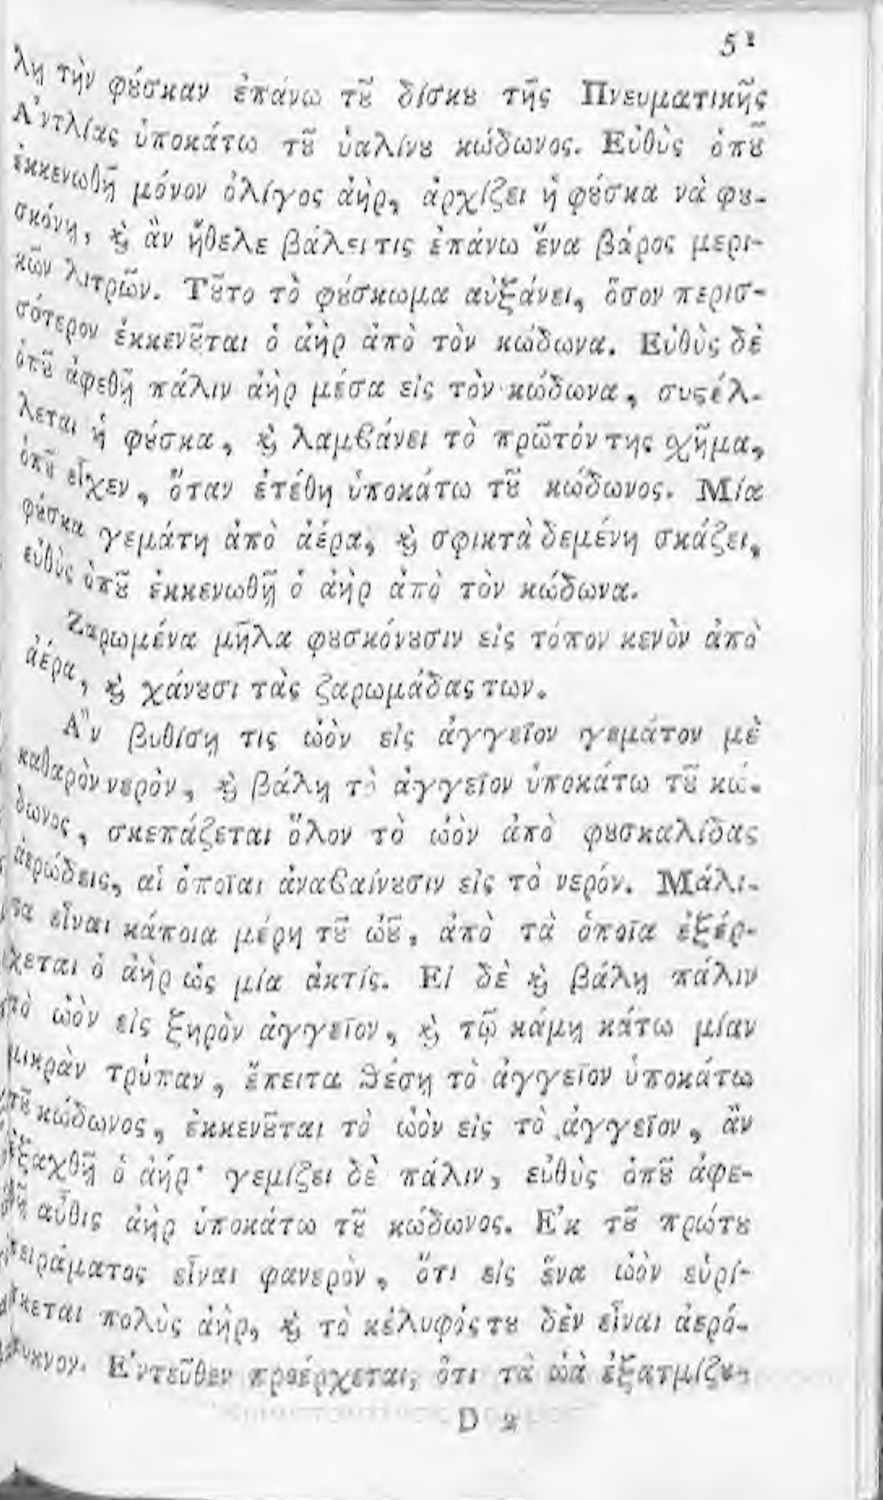 51
λῃ τὴν φȣ́σκαν ἐπάνω τȣ͂ δίσκȣ τῆς Πνευματικῆς
Ἀντλίας ὑποκάτω τȣ͂ ὑαλίνȣ κώδωνος. Εὐθὺς ὁπȣ͂
ἐκκενωθῇ μόνον ὀλίγος ἀὴρ, ἀρχίζει ἡ φȣ́σκα νὰ φȣ-
σκόνῃ, ϗ̀ ἂν ἤθελε βάλει τις ἐπάνω ἕνα βάρος μερι-
κῶν λιτρῶν. Τȣ͂το τὸ φȣ́σκωμα αὐξάνει, ὅσον περισ-
σότερον ἐκκενȣ͂ται ὁ ἀὴρ ἀπὸ τὸν κώδωνα. Εὐθὺς δὲ
ὁπȣ͂ ἀφεθῇ πάλιν ἀὴρ μέσα εἰς τὸν κώδωνα, συϛέλ-
λεται ἡ φȣ́σκα, ϗ̀ λαμβάνει τὸ πρῶτόν της χῆμα,
ὁπȣ͂ εἶχεν, ὅταν ἐτέθη ὑποκάτω τȣ͂ κώδωνος. Μία
φȣ́σκα γεμάτη ἀπὸ ἀέρα, ϗ̀ σφικτὰ δεμένη σκάζει,
εὐθὺς ὁπȣ͂ ἐκκενωθῇ ὁ ἀὴρ ἀπὸ τὸν κώδωνα.
Ζαρωμένα μῆλα φȣσκόνȣσιν εἰς τόπον κενὸν ἀπὸ
ἀέρα, ϗ̀ χάνȣσι τὰς ζαρωμάδας των.
Ἂν βυθίσῃ τις ὠὸν εἰς ἀγγεῖον γεμάτον μὲ
καθαρὸν νερὸν, ϗ̀ βάλῃ τὸ ἀγγεῖον ὑποκάτω τȣ͂ κώ-
δωνος, σκεπάζεται ὅλον τὸ ὠὸν ἀπὸ φȣσκαλίδας
ἀερώδεις, αἱ ὁποῖαι ἀναβαίνȣσιν εἰς τὸ νερόν. Μάλι-
ϛα εἶναι κάποια μέρη τȣ͂ ὠȣ͂, ἀπὸ τὰ ὁποῖα ἐξέρ-
χεται ὁ ἀὴρ ὡς μία ἀκτίς. Εἰ δὲ ϗ̀ βάλῃ πάλιν
τὸ ὠὸν εἰς ξηρὸν ἀγγεῖον, ϗ̀ τῷ κάμῃ κάτω μίαν
μικρὰν τρύπαν, ἔπειτα θέσῃ τὸ ἀγγεῖον ὑποκάτω
τȣ͂ κώδωνος, ἐκκενȣ͂ται τὸ ὠὸν εἰς τὸ ἀγγεῖον, ἂν
ἐξαχθῇ ὁ ἀήρ· γεμίζει δὲ πάλιν, εὐθὺς ὁπȣ͂ ἀφε-
θῇ αὖθις ἀὴρ ὑποκάτω τȣ͂ κώδωνος. Ἐκ τȣ͂ πρώτȣ
πειράματος εἶναι φανερὸν, ὅτι εἰς ἕνα ὠὸν εὑρί-
σκεται πολὺς ἀὴρ, ϗ̀ τὸ κέλυφός τȣ δὲν εἶναι ἀερό-
πυκνον. Ἐντεῦθεν προέρχεται, ὅτι τὰ ὠὰ ἐξατμίζȣ-
D 2